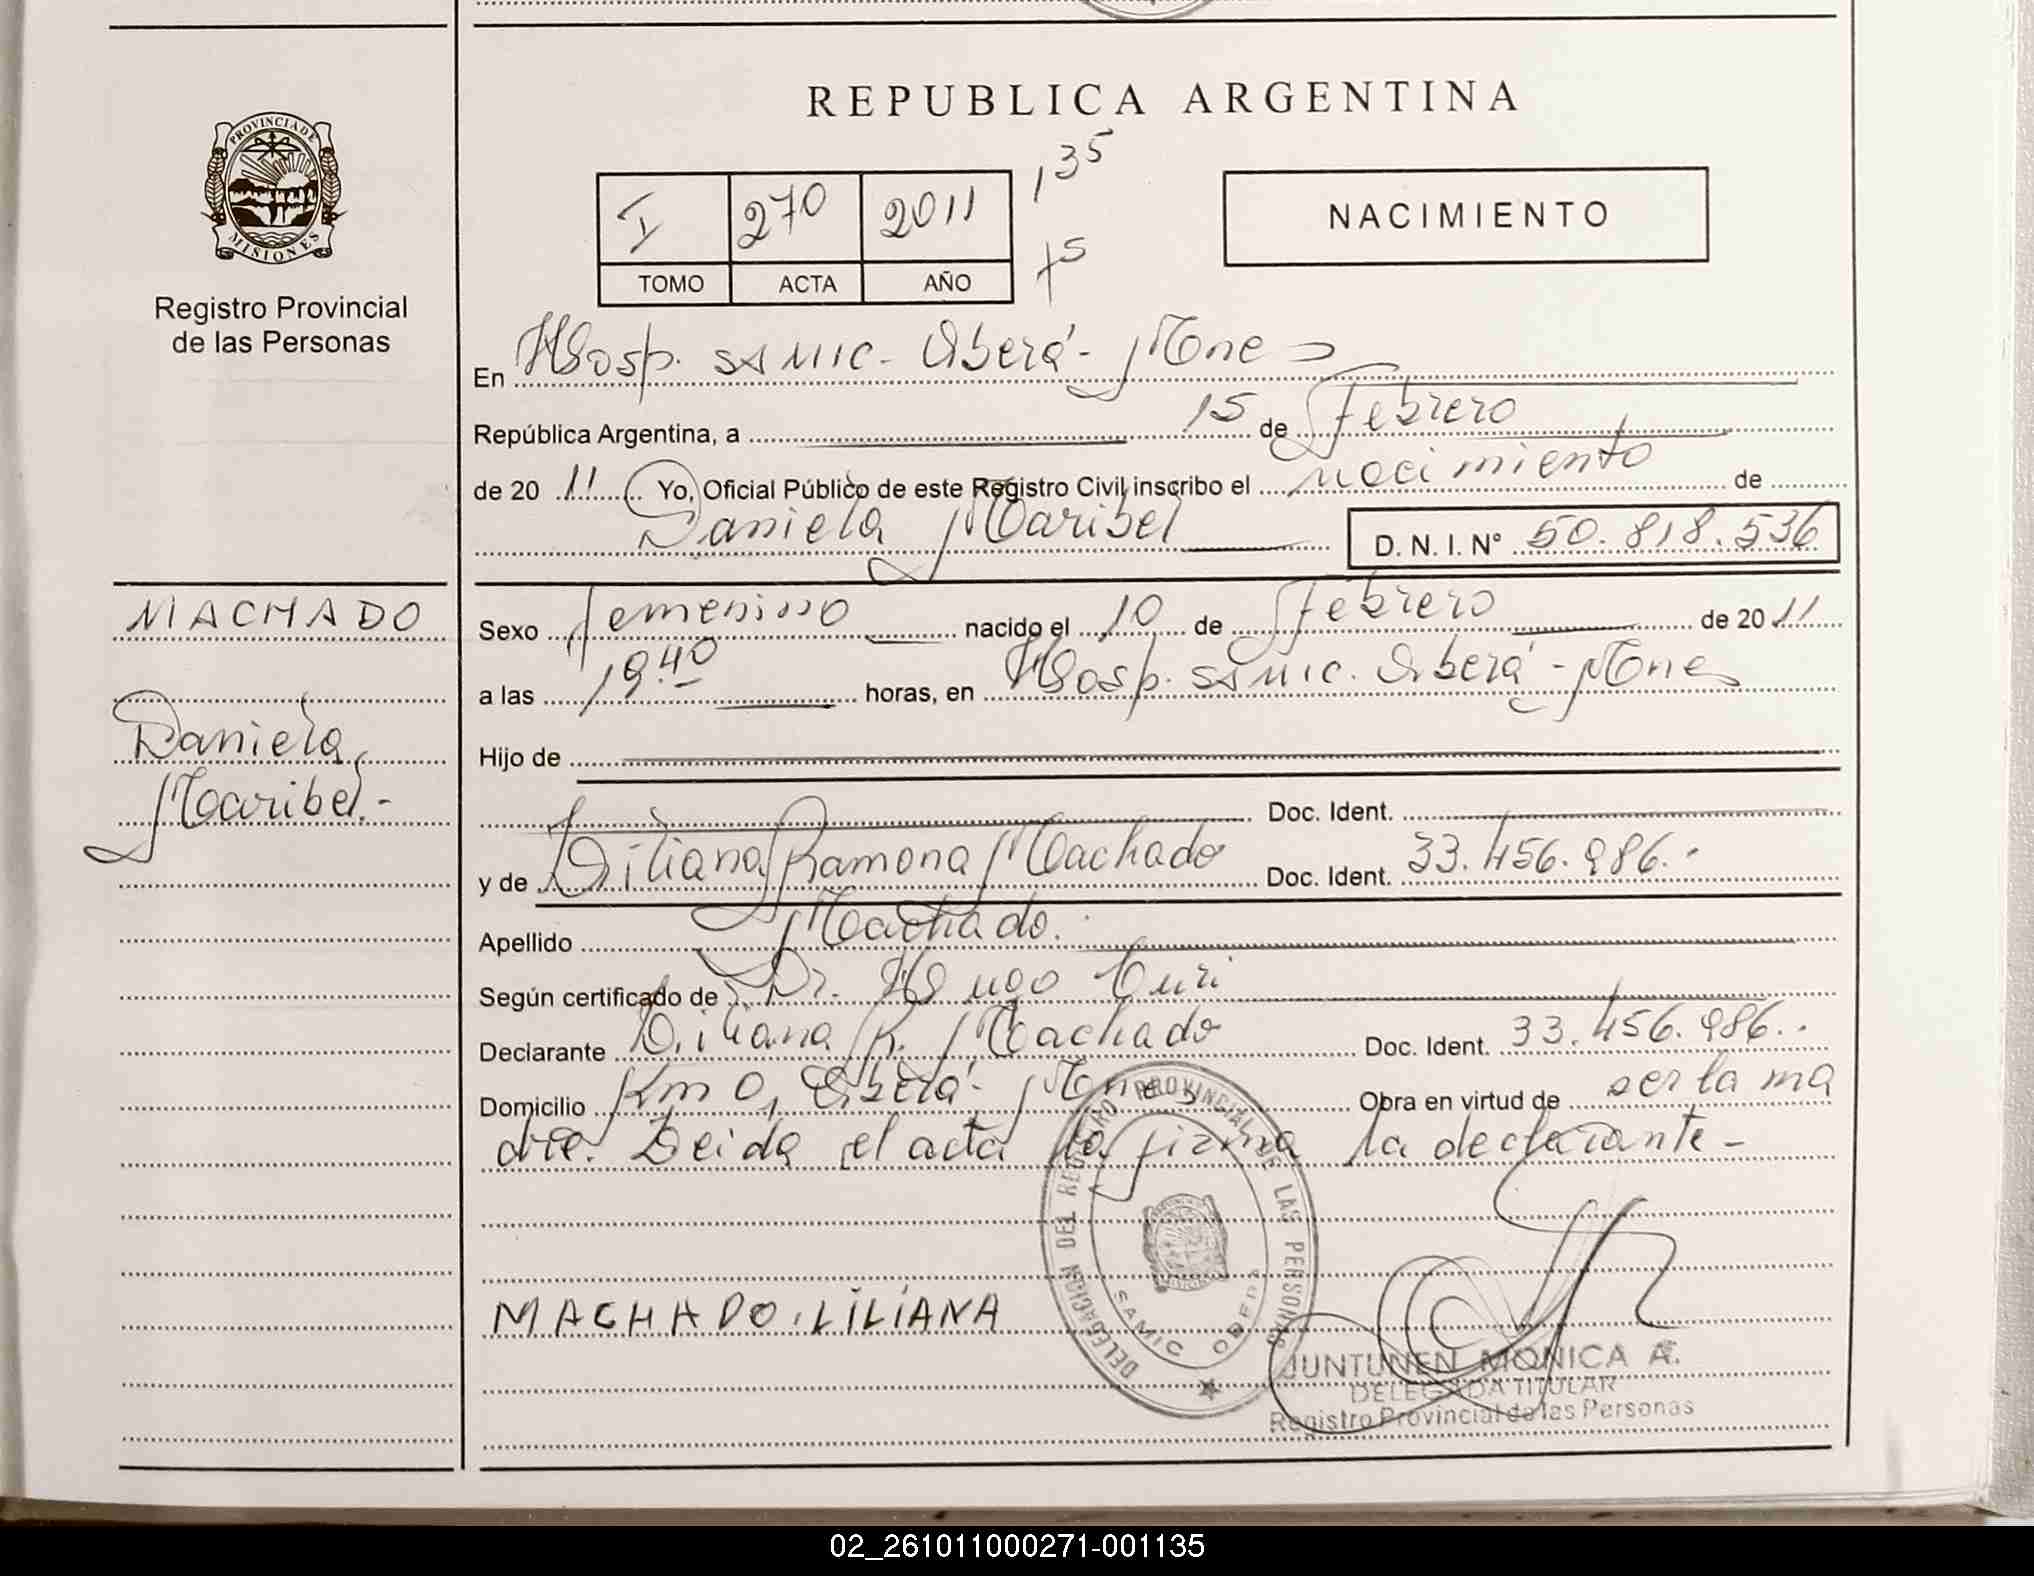 REPUBLICA ARGENTINA
PROVINCIA DE
MISIONES
Registro Provincial
de las Personas
I 270 2011
TOMO ACTA AÑO
135
75
NACIMIENTO
En Hosp. SAMIC. Oberá - Mnes
República Argentina, a 15 de Febrero
de 20 11 Yo, Oficial Público de este Registro Civil inscribo el nacimiento de
Daniela Maribel D. N. I. Nº 50.818.536
MACHADO
Daniela
Maribel.-
Sexo femenino nacido el 10 de Febrero de 20 11
a las 19.40 horas, en Hosp. SAMIC. Oberá - Mnes
Hijo de
Doc. Ident.
y de Liliana Ramona Machado Doc. Ident. 33.456.986.-
Apellido Machado.
Según certificado de Dr. Hugo
Declarante Liliana R. Machado Doc. Ident. 33.456.986..
Domicilio Km 0, Oberá - Mnes Obra en virtud de ser la ma
dre. Leida el acta la firma la declarante -
DELEGACION DEL REGISTRO PROVINCIAL DE LAS PERSONAS
SAMIC OBERA
MACHADO. LILIANA
JUNTUNEN MONICA A.
DELEGADA TITULAR
Registro Provincial de las Personas
02_261011000271-001135